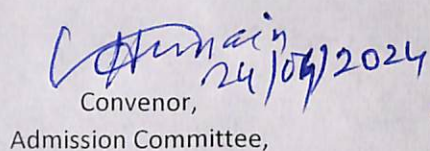 24/04/2024
Convenor,
Admission Committee,